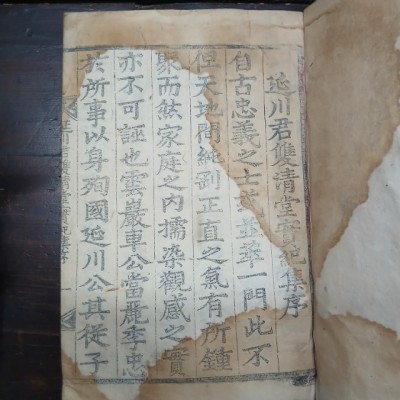 延川君雙清堂實紀集序
自古忠義之士或並列一門此不
但天地間純剛正直之氣有所鍾
聚而然家庭之內擩染觀感之實
亦不可誣也雲巖車公當麗季忠
於所事以身殉國延川公其從子
川君雙清堂實紀集序